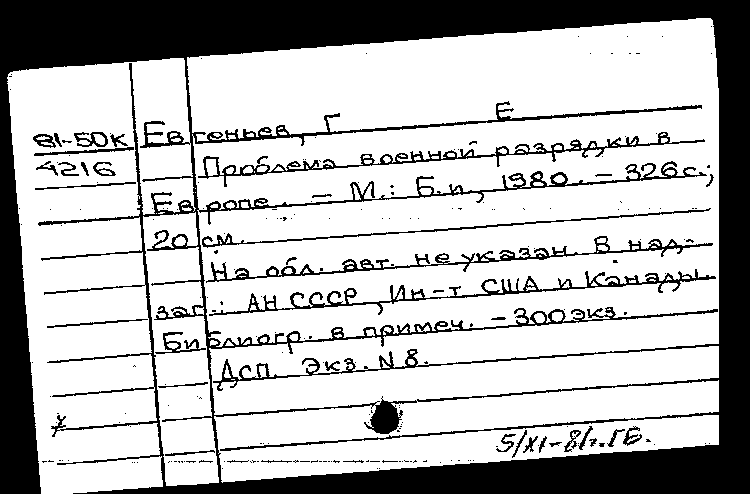 Е
81-50К Евгеньев, Г
4216 Проблема военной разрядки в
Европе. – М.: Б.и, 1980. – 326 с.;
20 см.
На обл. авт. не указан. В над-
заг.: АН СССР, Ин-т США и Канады.
Библиогр. в примеч. – 300 экз.
Дсп. Экз. N 8.
5/XI-81г. ГБ.